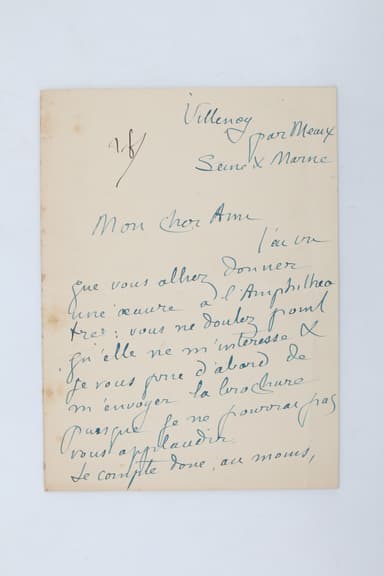 Villenoy
par Meaux
Seine & Marne
Mon cher Ami
J'ai vu
que vous alliez donner
une œuvre à l'Amphithéa
tre : vous ne doutez point
qu'elle ne m'intéresse &
je vous prie d'abord de
m'envoyer la brochure
puisque je ne pourrai pas
vous applaudir.
Je compte donc, au moins,